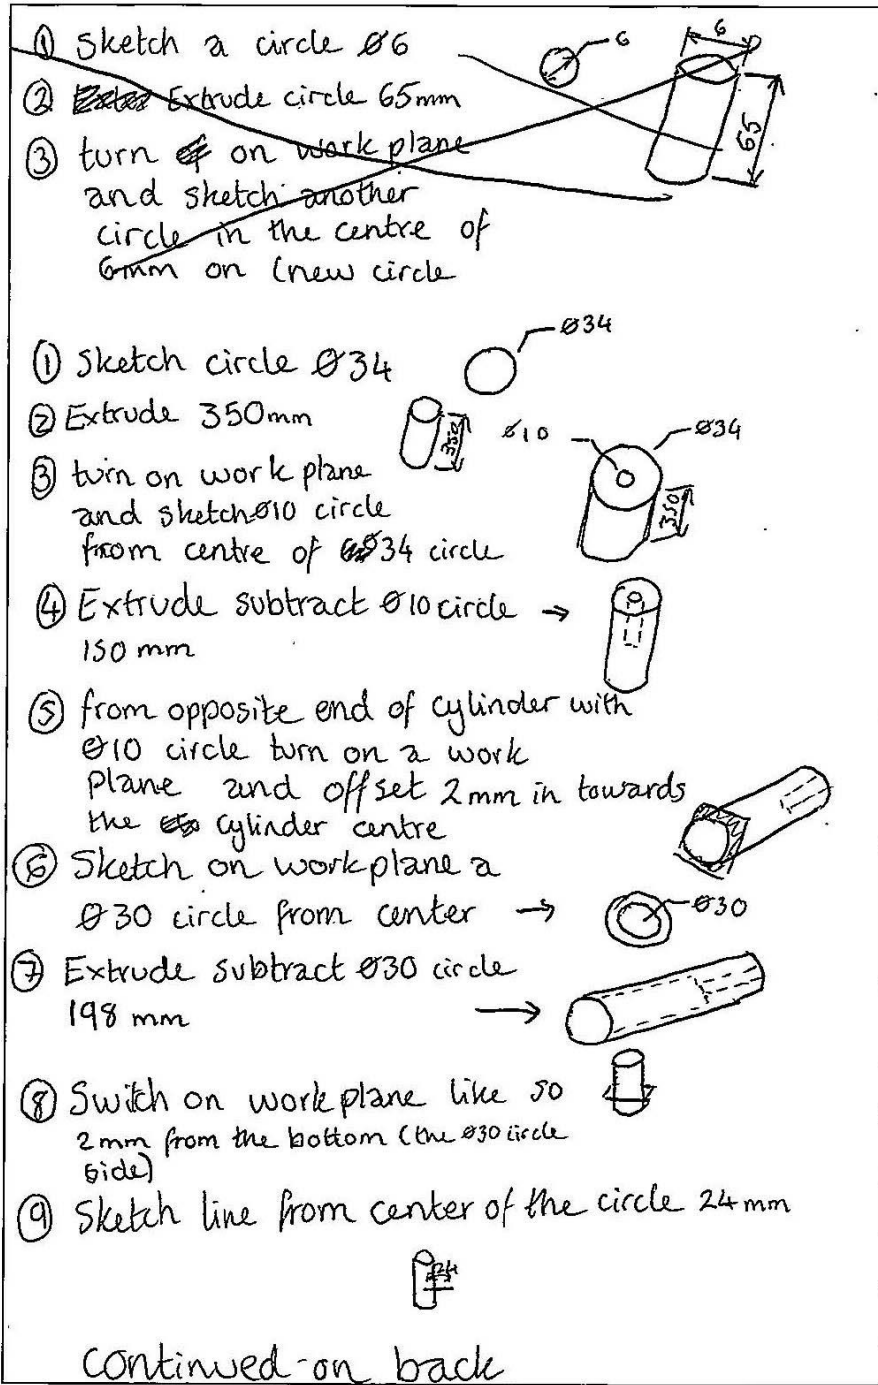 ① Sketch a circle Ø6
6
6
② Extrude circle 65mm
65
③ turn on work plane
and sketch another
circle in the centre of
6mm on (new circle
Ø34
① Sketch circle Ø34
② Extrude 350mm
350
Ø10
Ø34
350
③ turn on work plane
and sketch Ø10 circle
from centre of Ø34 circle
④ Extrude subtract Ø10 circle →
150 mm
⑤ from opposite end of cylinder with
Ø10 circle turn on a work
plane and offset 2mm in towards
the cylinder centre
⑥ Sketch on workplane a
Ø30 circle from center →
Ø30
⑦ Extrude subtract Ø30 circle
198 mm →
⑧ Switch on workplane like so
2mm from the bottom (the Ø30 circle
side)
⑨ Sketch line from center of the circle 24mm
24
continued on back